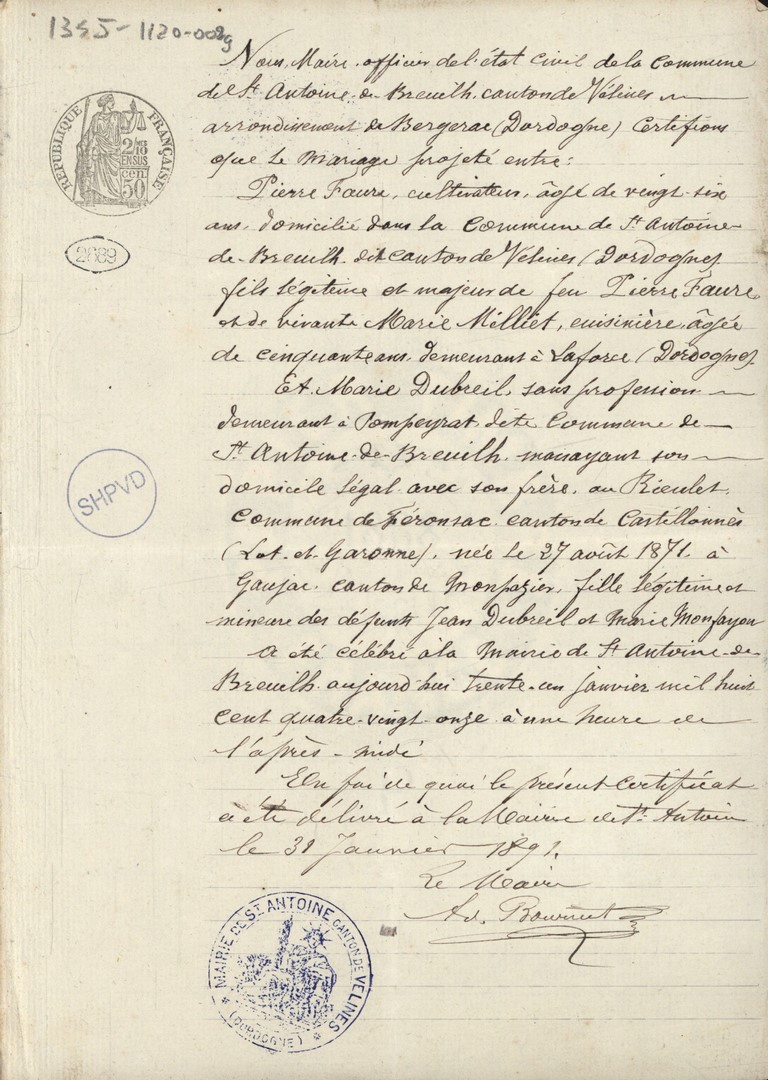 1345-1120-0089
Nous, Maire, officier de l'état civil de la Commune
de St Antoine-de-Breuilh, canton de Vélines
arrondissement de Bergerac (Dordogne) Certifions
que le mariage projeté entre:
Pierre Faure, cultivateur, âgé de vingt-six
ans, domicilié dans la Commune de St Antoine-
de-Breuilh, dit canton de Vélines (Dordogne),
fils légitime et majeur de feu Pierre Faure
et de vivante Marie Milliet, cuisinière, âgée
de cinquante ans, demeurant à Laforce (Dordogne).
Et Marie Dubreil, sans profession
demeurant à Pompeyrat dite Commune de
St Antoine-de-Breuilh, mais ayant son
domicile légal avec son frère, au Rieulet,
Commune de Féronsac, canton de Castillonnès
(Lot-et-Garonne), née le 27 août 1871, à
Gaujac, canton de Monpazier, fille légitime et
mineure des défunts Jean Dubreil et Marie Monfayon
a été célébré à la Mairie de St Antoine-de-
Breuilh, aujourd'hui trente-un janvier mil huit
cent quatre-vingt-onze à une heure de
l'après-midi
En foi de quoi le présent certificat
a été délivré à la Mairie de St Antoine
le 31 Janvier 1891.
Le Maire
REPUBLIQUE FRANÇAISE
2/10
EN SUS
50 cen.
2689
SHPVD
MAIRIE DE ST ANTOINE CANTON DE VELINES
(DORDOGNE)